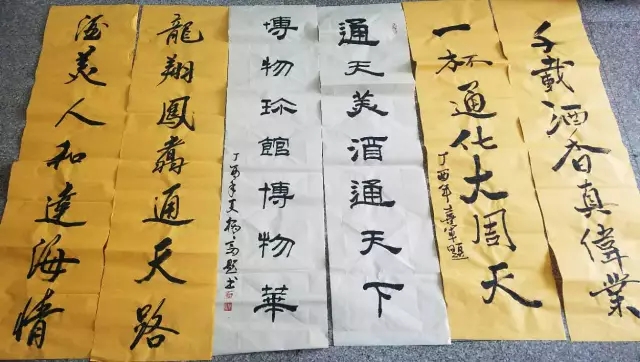 千載酒香真偉業
一杯通化大周天
丁酉年章軍題
通天美酒通天下
博物珎館博物華
丁酉年夏
龍翔鳳翥通天路
酒美人和達海情